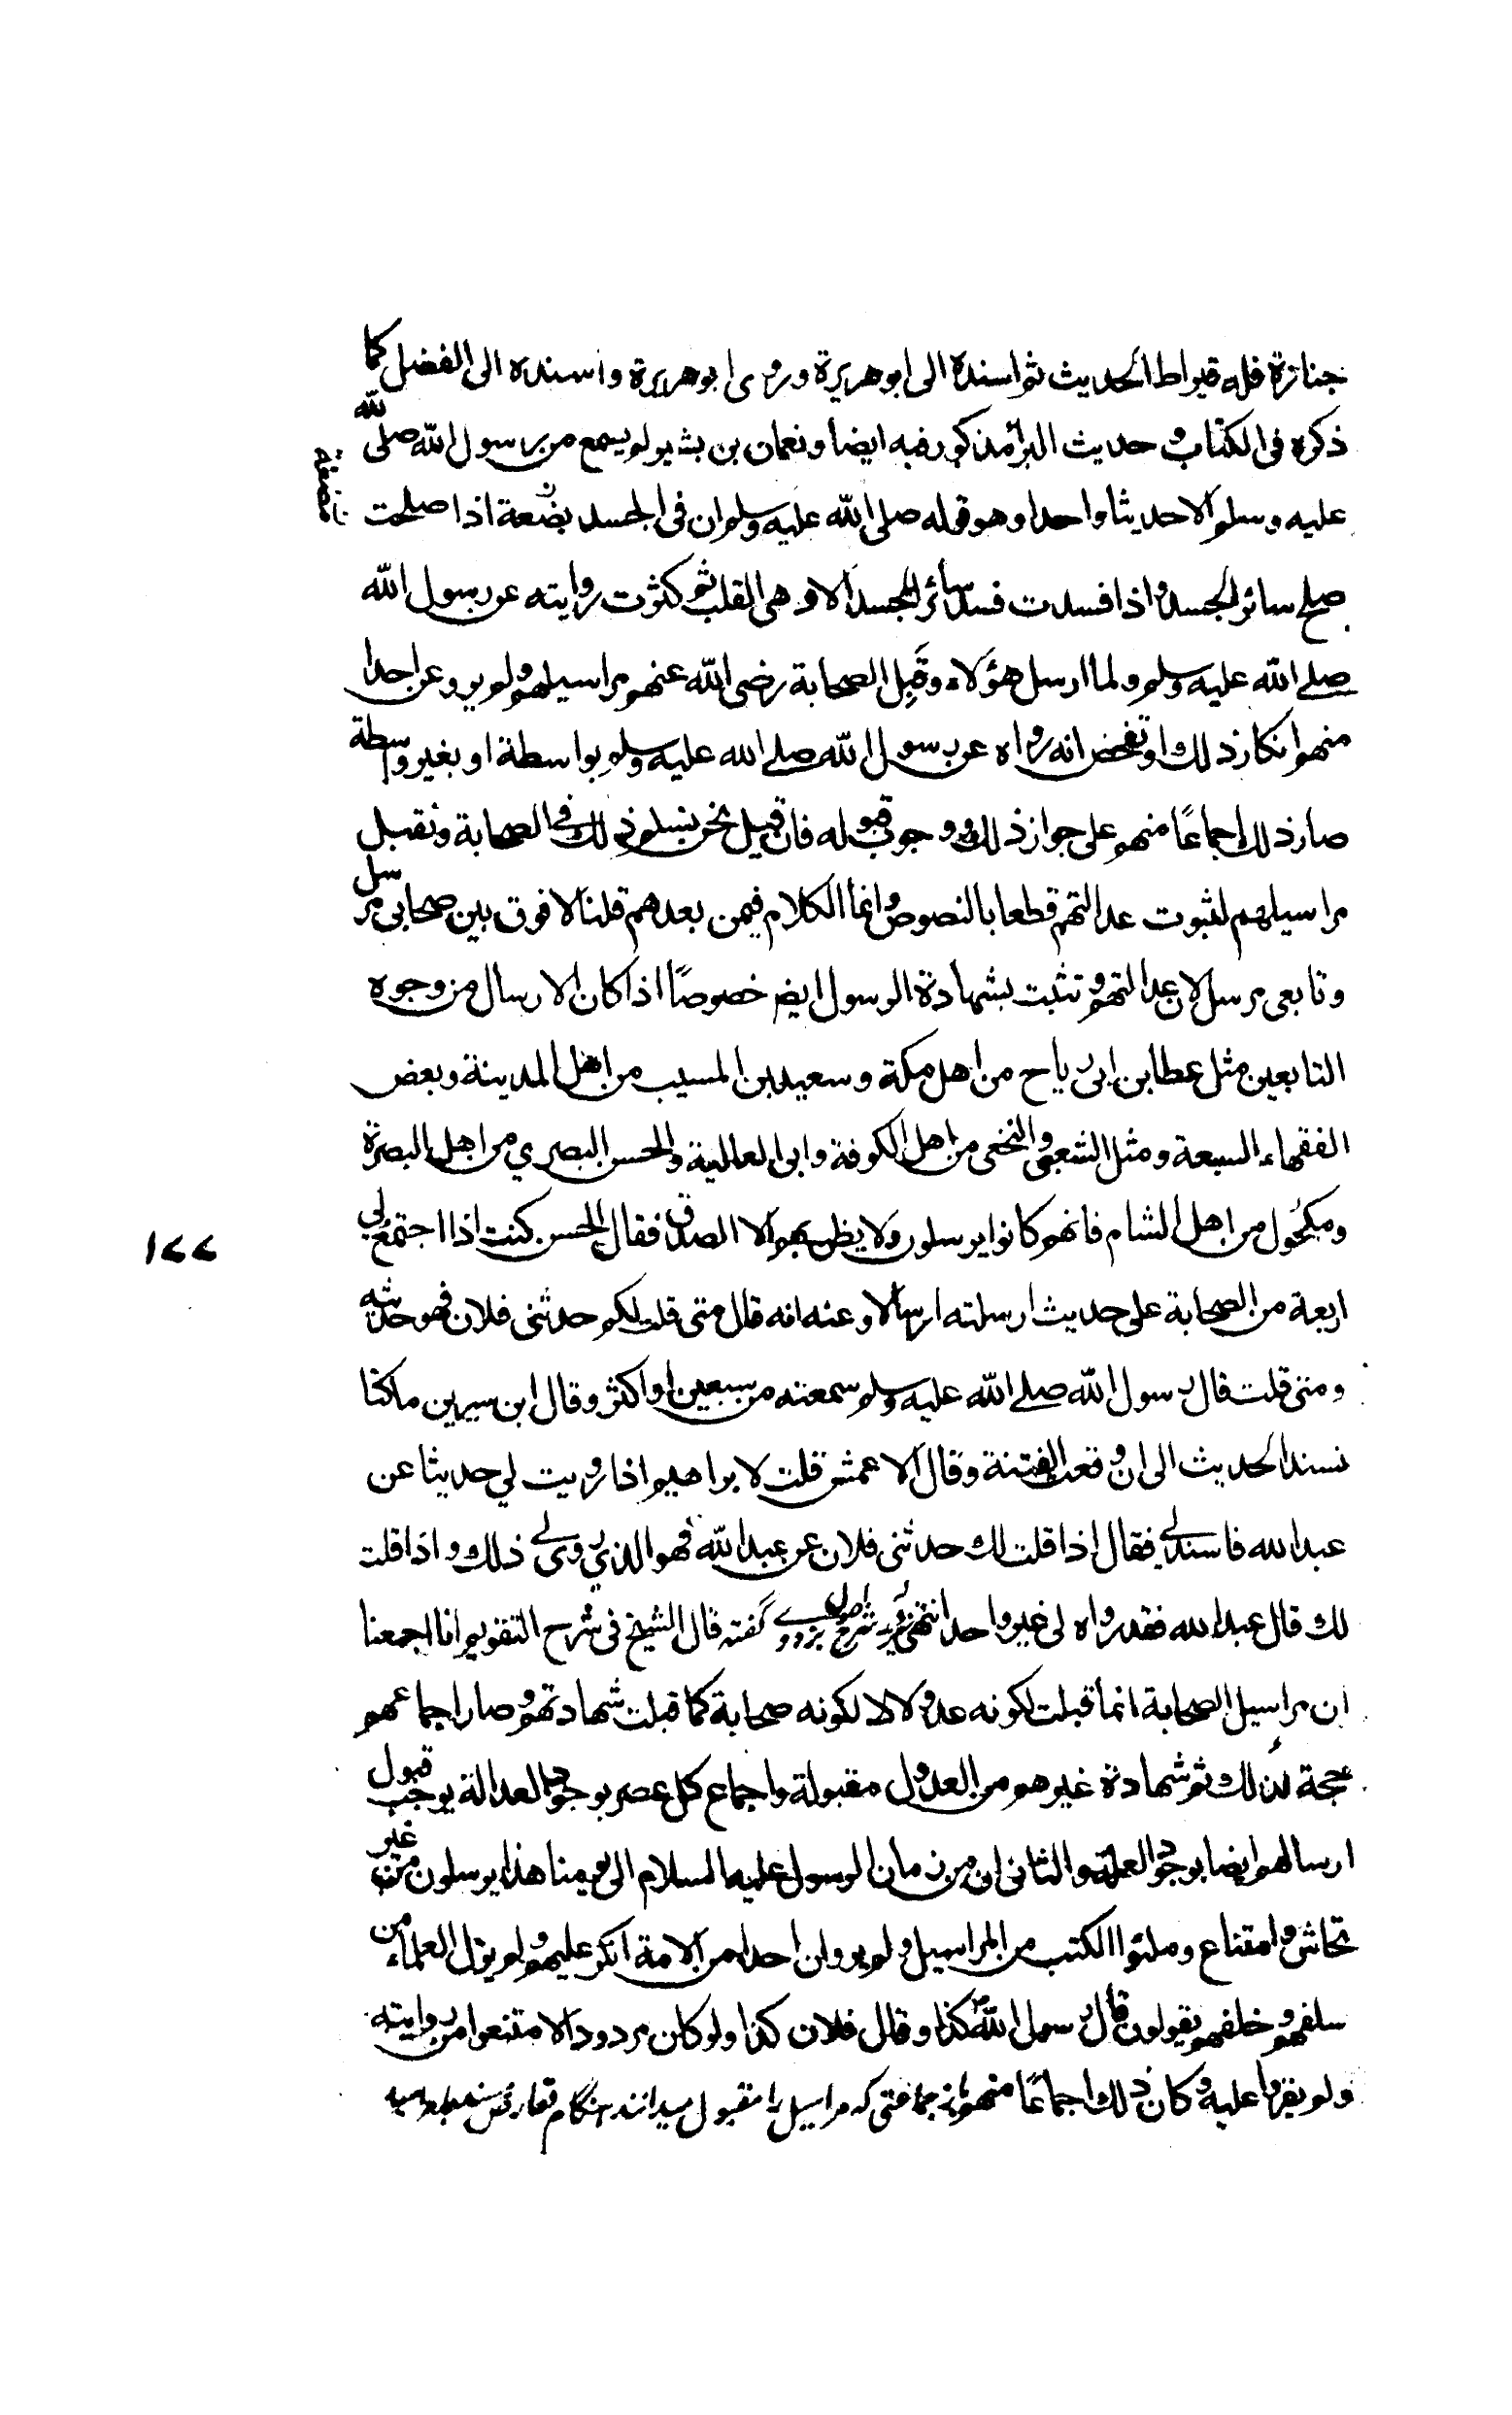 جنازة فله قيراط الحديث ثم اسنده الى ابو هريرة وروى ابو هريرة واسنده الى الفضل كما
ذكره فى الكتاب و حديث البراء مذكور فيه ايضا ونعمان بن بشير لم يسمع من رسول الله صلى الله
عليه وسلم الا حديثا واحدا وهو قوله صلى الله عليه وسلم ان فى الجسد بضعة اذا صلحت
صلح سائر الجسد واذا فسدت فسد سائر الجسد الا وهى القلب ثم كثرت روايته عن رسول الله
صلى الله عليه وسلم ولما ارسل هؤلاء وقبل الصحابة رضى الله عنهم مراسيلهم ولم يرو عن احدا
منهم انكار ذلك او تفحص انه رواه عن رسول الله صلى الله عليه وسلم بواسطة او بغير واسطة
صار ذلك اجماعًا منهم على جواز ذلك ووجوب قبوله فان قيل نحن نسلم ذلك فى الصحابة ونقبل
مراسيلهم لثبوت عدالتهم قطعا بالنصوص وانما الكلام فيمن بعدهم قلنا لا فرق بين صحابى مرسل
وتابعى مرسل لان عدالتهم تثبت بشهادة الرسول ايضر خصوصًا اذا كان الارسال من وجوه
التابعين مثل عطا بن ابى رباح من اهل مكة وسعيد بن المسيب من اهل المدينة وبعض
الفقهاء السبعة ومثل الشعبى والنخعى من اهل الكوفة وابى العالية والحسن البصري من اهل البصرة
ومكحول من اهل الشام فانهم كانوا يرسلون ولا يظن بهم الا الصدق فقال الحسن كنت اذا اجتمع لي
اربعة من الصحابة على حديث ارسلته ارسالا وعنه انه قال متى قلت لكم حدثنى فلان فهو حديثه
ومتى قلت قال رسول الله صلى الله عليه وسلم سمعته من سبعين او اكثر وقال ابن سيرين ما كنا
نسند الحديث الى ان وقعت الفتنة وقال الاعمش قلت لابراهيم اذا رويت لي حديثا عن
عبد الله فاسنده لي فقال اذا قلت لك حدثنى فلان عن عبد الله فهو الذي روى لي ذلك واذا قلت
لك قال عبد الله فقد رواه لى غير واحد انتهى ودر شرح اصول بزدوي گفته قال الشيخ فى شرح التقويم انا اجمعنا
ان مراسيل الصحابة انما قبلت لكونه عدولا لا لكونه صحابة كما قبلت شهادتهم وصار اجماعهم
حجة لذلك ثم شهادة غيرهم من العدول مقبولة واجماع كل عصر بوجود العدالة يوجب قبول
ارسالهم ايضا بوجود العلة والثانى ان من زمان الرسول عليه السلام الى يومنا هذا يرسلون من غير
تحاش وامتناع وملئوا الكتب من المراسيل ولم يرو ان احدا من الامة انكر عليهم ولم يزل العلماء من
سلفهم وخلفهم يقولون قال رسول الله كذا وقال فلان كذا ولو كان مردودا لامتنعوا من روايته
ولم يقروا عليه وكان ذلك اجماعًا منهم و نيز جماعتى كه مراسيل را مقبول ميدانند هنگام تعارض
١٧٧